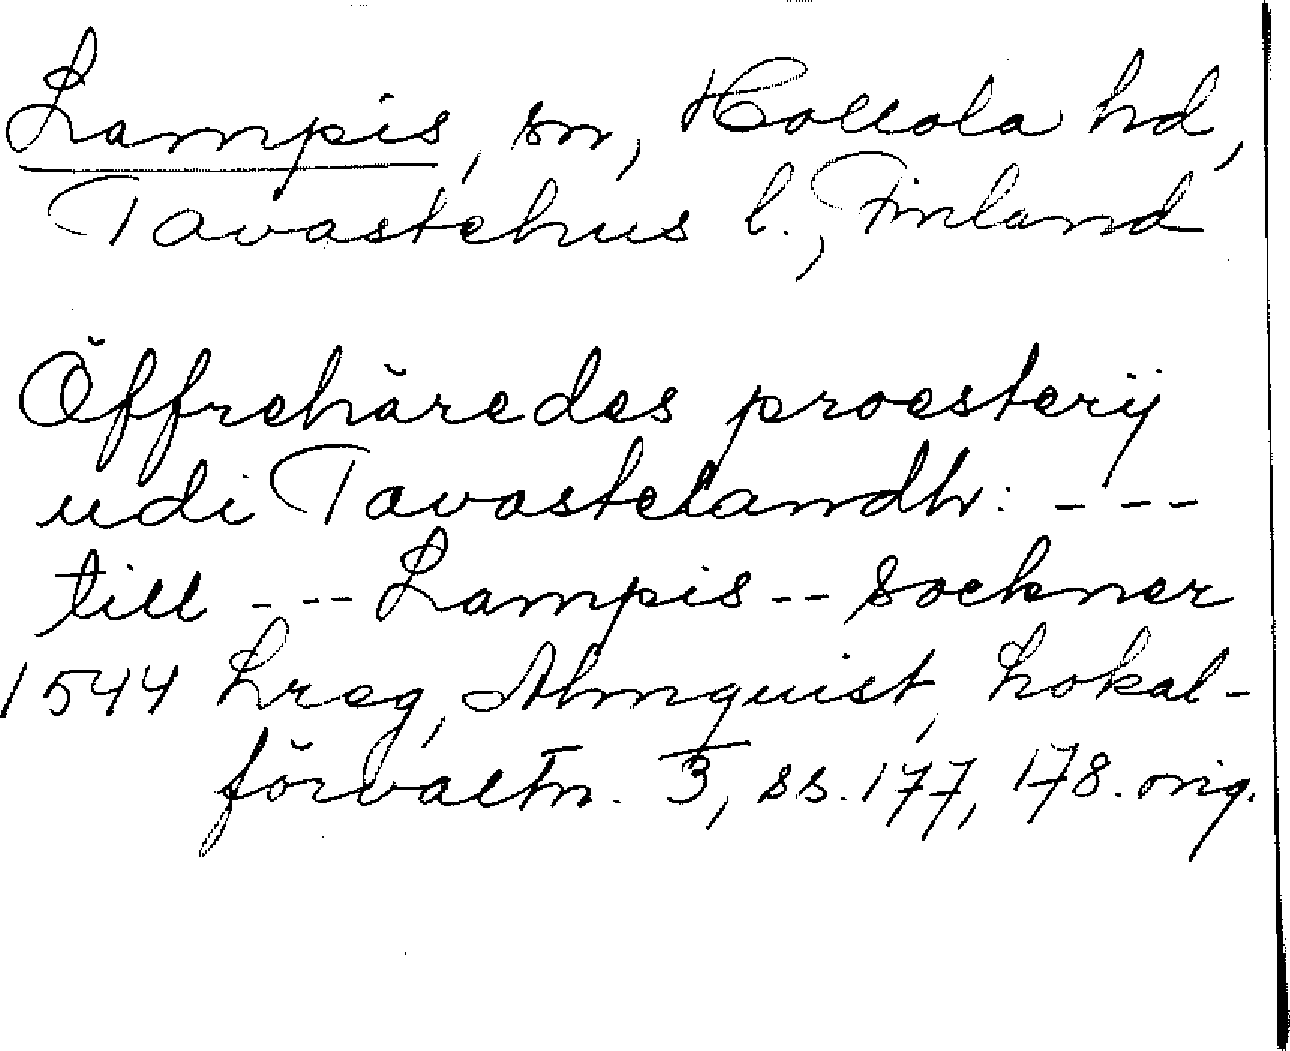 Lampis, sn, Hollola hd,
Tavastehus l., Finland
Öffrehäredes proesterij
udi Tavastelandh: - - -
till - - - Lampis - - Sockner
1544 Lreg, Almquist, Lokal-
förvaltn. 3, ss. 177, 178. orig.